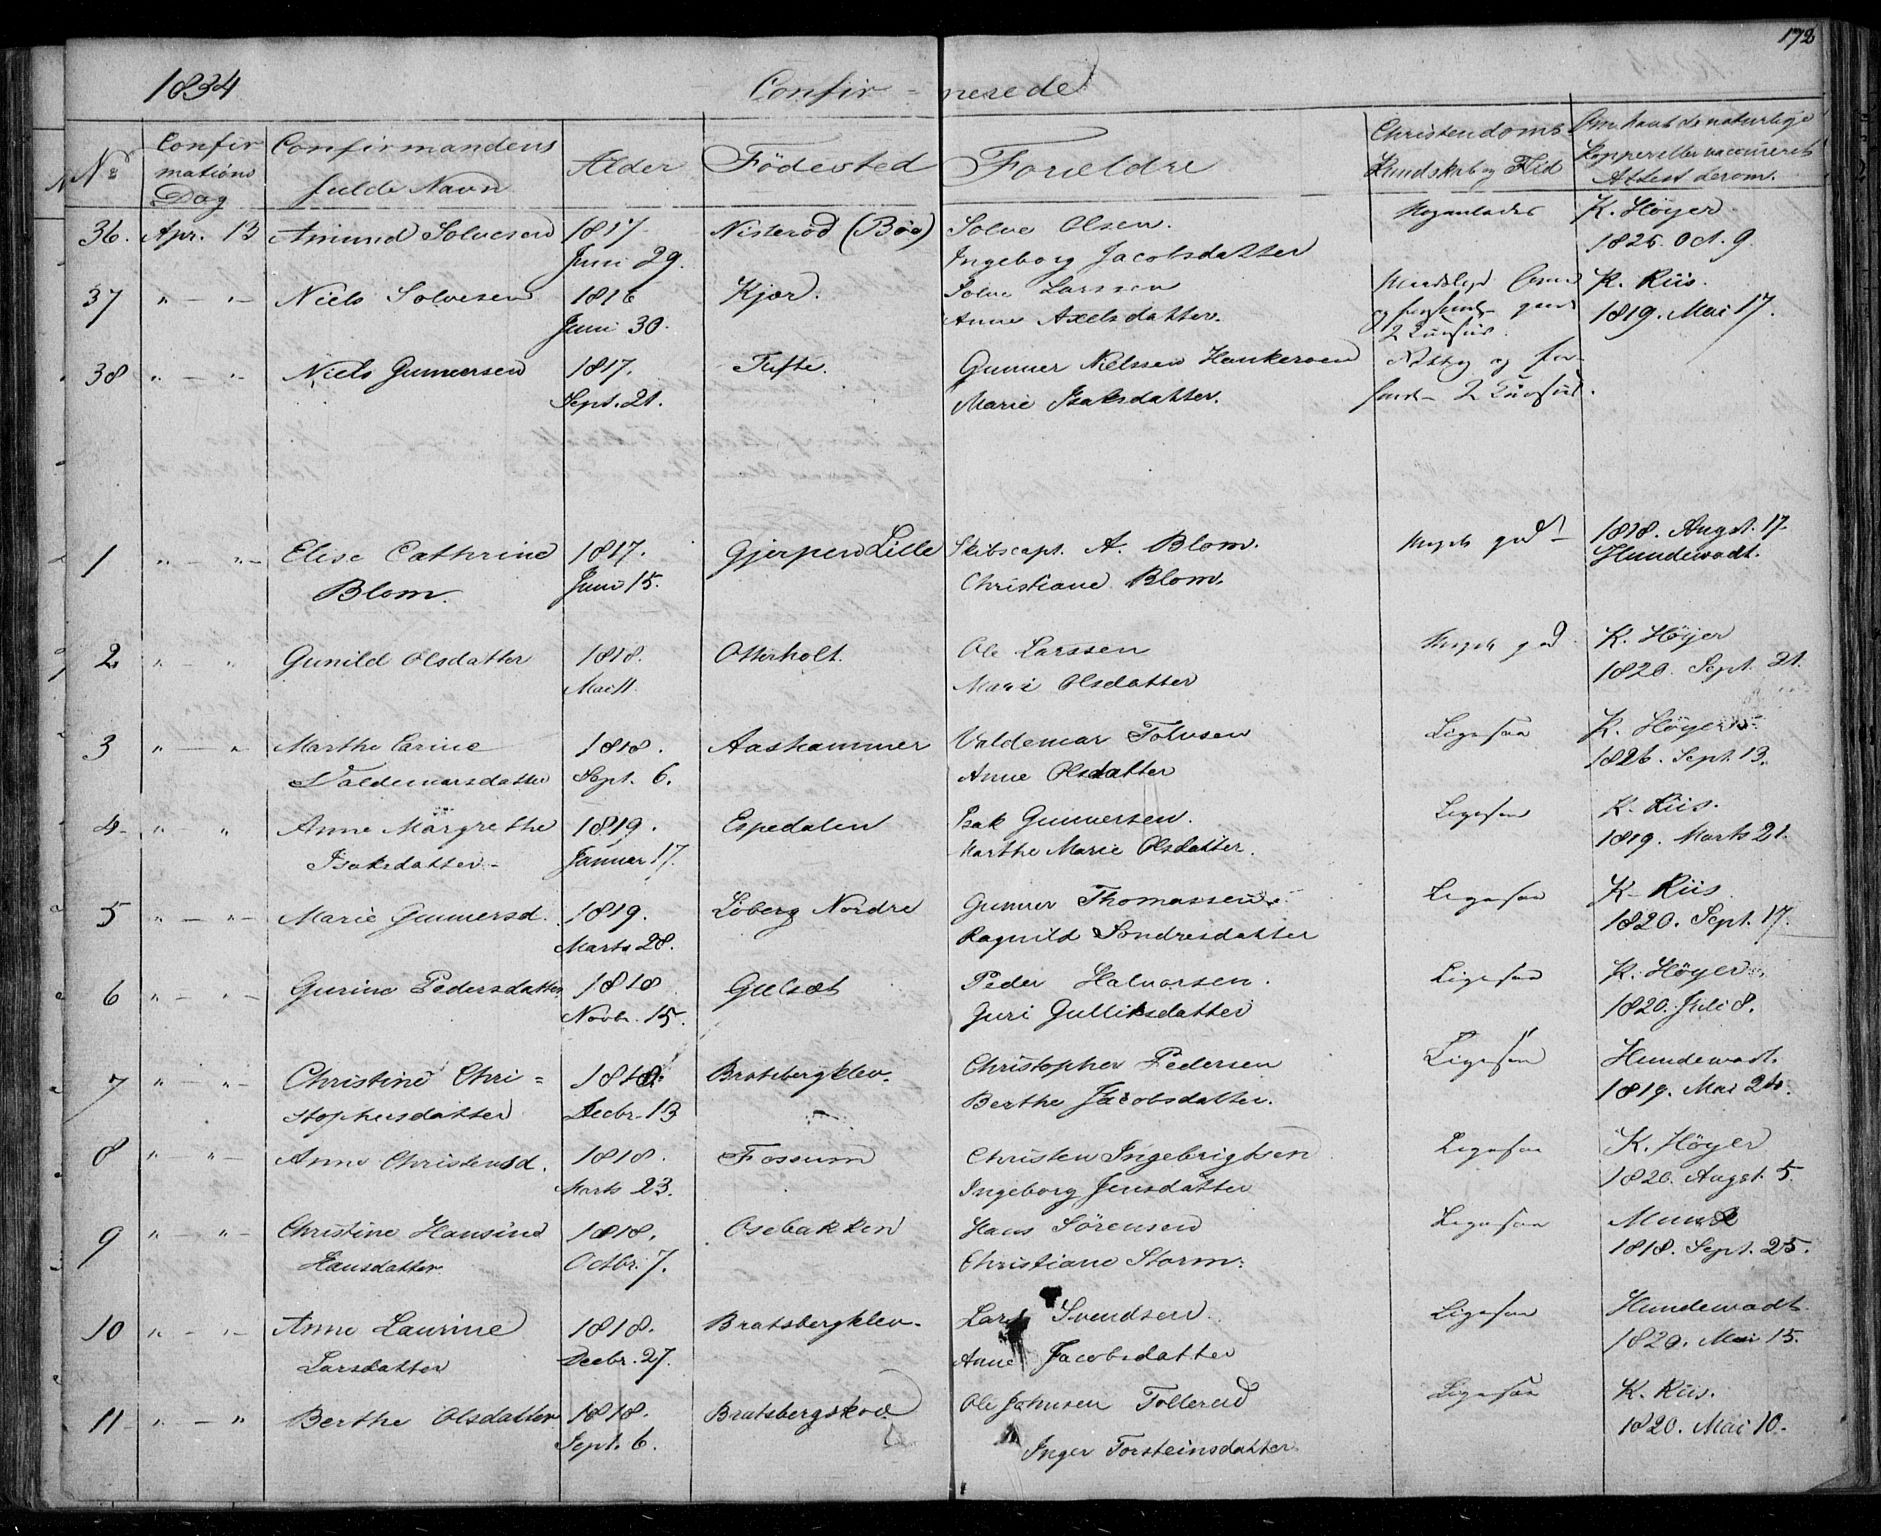 172
1834 Confir- merede
No Confirmations Dag Confirmandens fulde Navn Alder Födested Forældre Christendoms Kundskab og Flid Om havt de naturlige Kopper eller vaccineret Attest derom.
36. Apr. 13 Amund Solvesen 1817 Nisterød (Böe) Solve Olsen. K. Höyer
Juni 29. Ingeborg Jacobsdatter 1825. Oct. 9.
37 " — " — Niels Solvesen 1816 Kjær. Solve Larssen K. Riis.
Juni 30. Anne Axelsdatter. 1819. Mai 17.
2 Cursus.
38 " — " — Niels Gunnersen 1817. Tufte. Gunner Nielssen Hankeroen
Sept. 21. Marie Isaksdatter. 2 Cursus.
1 " — " — Elise Cathrine 1817. Gjerpen Lille Skibscapt. A. Blom. Meget god 1818. Augst. 17.
Blom. Juni 15. Christiane Blom. Hundewadt.
2 " — " Gunild Olsdatter 1818. Otterholt. Ole Larssen Meget god K. Höyer
Mai 11. Mari Olsdatter 1820. Sept. 21.
3 " — " Marthe Carine 1818. Aashammer Valdemar Tolvsen Ligesaa K. Höyer
Valdemarsdatter Sept. 6. Anne Olsdatter 1826. Sept. 13.
4 " — " Anne Margrethe 1819. Espedalen Isak Gunnersen. Ligesaa K. Riis.
Isaksdatter — Januar 17. Marthe Marie Olsdatter. 1819. Marts 21.
5 " — " — Marie Gunnersd. 1819. Löberg Nordre Gunner Thomassen Ligesaa K. Riis
Marts 28. Ragnild Sondresdatter 1820. Sept. 17.
6 " — " — Gurine Pedersdatter 1818 Gulset Peder Halvorsen. Ligesaa K. Höyer
Novbr. 15. Guri Gulliksdatter 1820. Juli 8.
7 " — " — Christine Chri= 1818. Bratsbergklev. Christopher Pedersen Ligesaa Hundewadt.
stophersdatter Decbr. 13 Berthe Jacobsdatter. 1819. Mai 24.
8 " — " — Anne Christensd. 1818. Fossum Christen Ingebrigtsen Ligesaa K. Höyer
Marts 23. Ingeborg Jensdatter 1820. Augst. 5.
9 " — " — Christine Hansine 1818. Osebakken Hans Sörensen Ligesaa Munk
Hansdatter. Octbr. 7. Christiane Storm. 1818. Sept. 25.
10 " — " — Anne Laurine 1818. Bratsbergklev. Lars Svendsen. Ligesaa Hundewadt.
Larsdatter Decbr. 27. Anne Jacobsdatter 1820. Mai 15.
11 " — " Berthe Olsdatter 1818. Bratsbergskov Ole Johnsen Tollerud Ligesaa K. Riis.
Sept. 6. Inger Torsteinsdatter 1820. Mai 10.